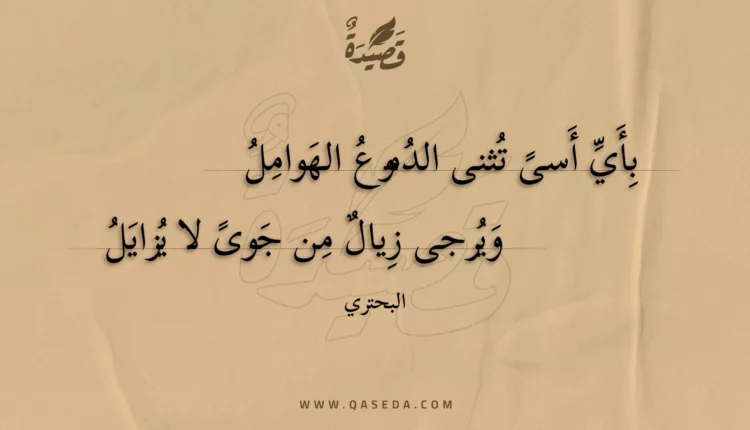 قَصِيدَةٌ
بِأَيِّ أَسىً تُثنى الدُموعُ الهَوامِلُ
وَيُرجى زِيالٌ مِن جَوىً لا يُزايَلُ
البحتري
WWW.QASEDA.COM